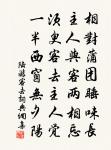 相對蒲團睡味長
主人與客兩相忘
須臾客去主人覺
一半西窗無夕陽
陸游客去詞典網集